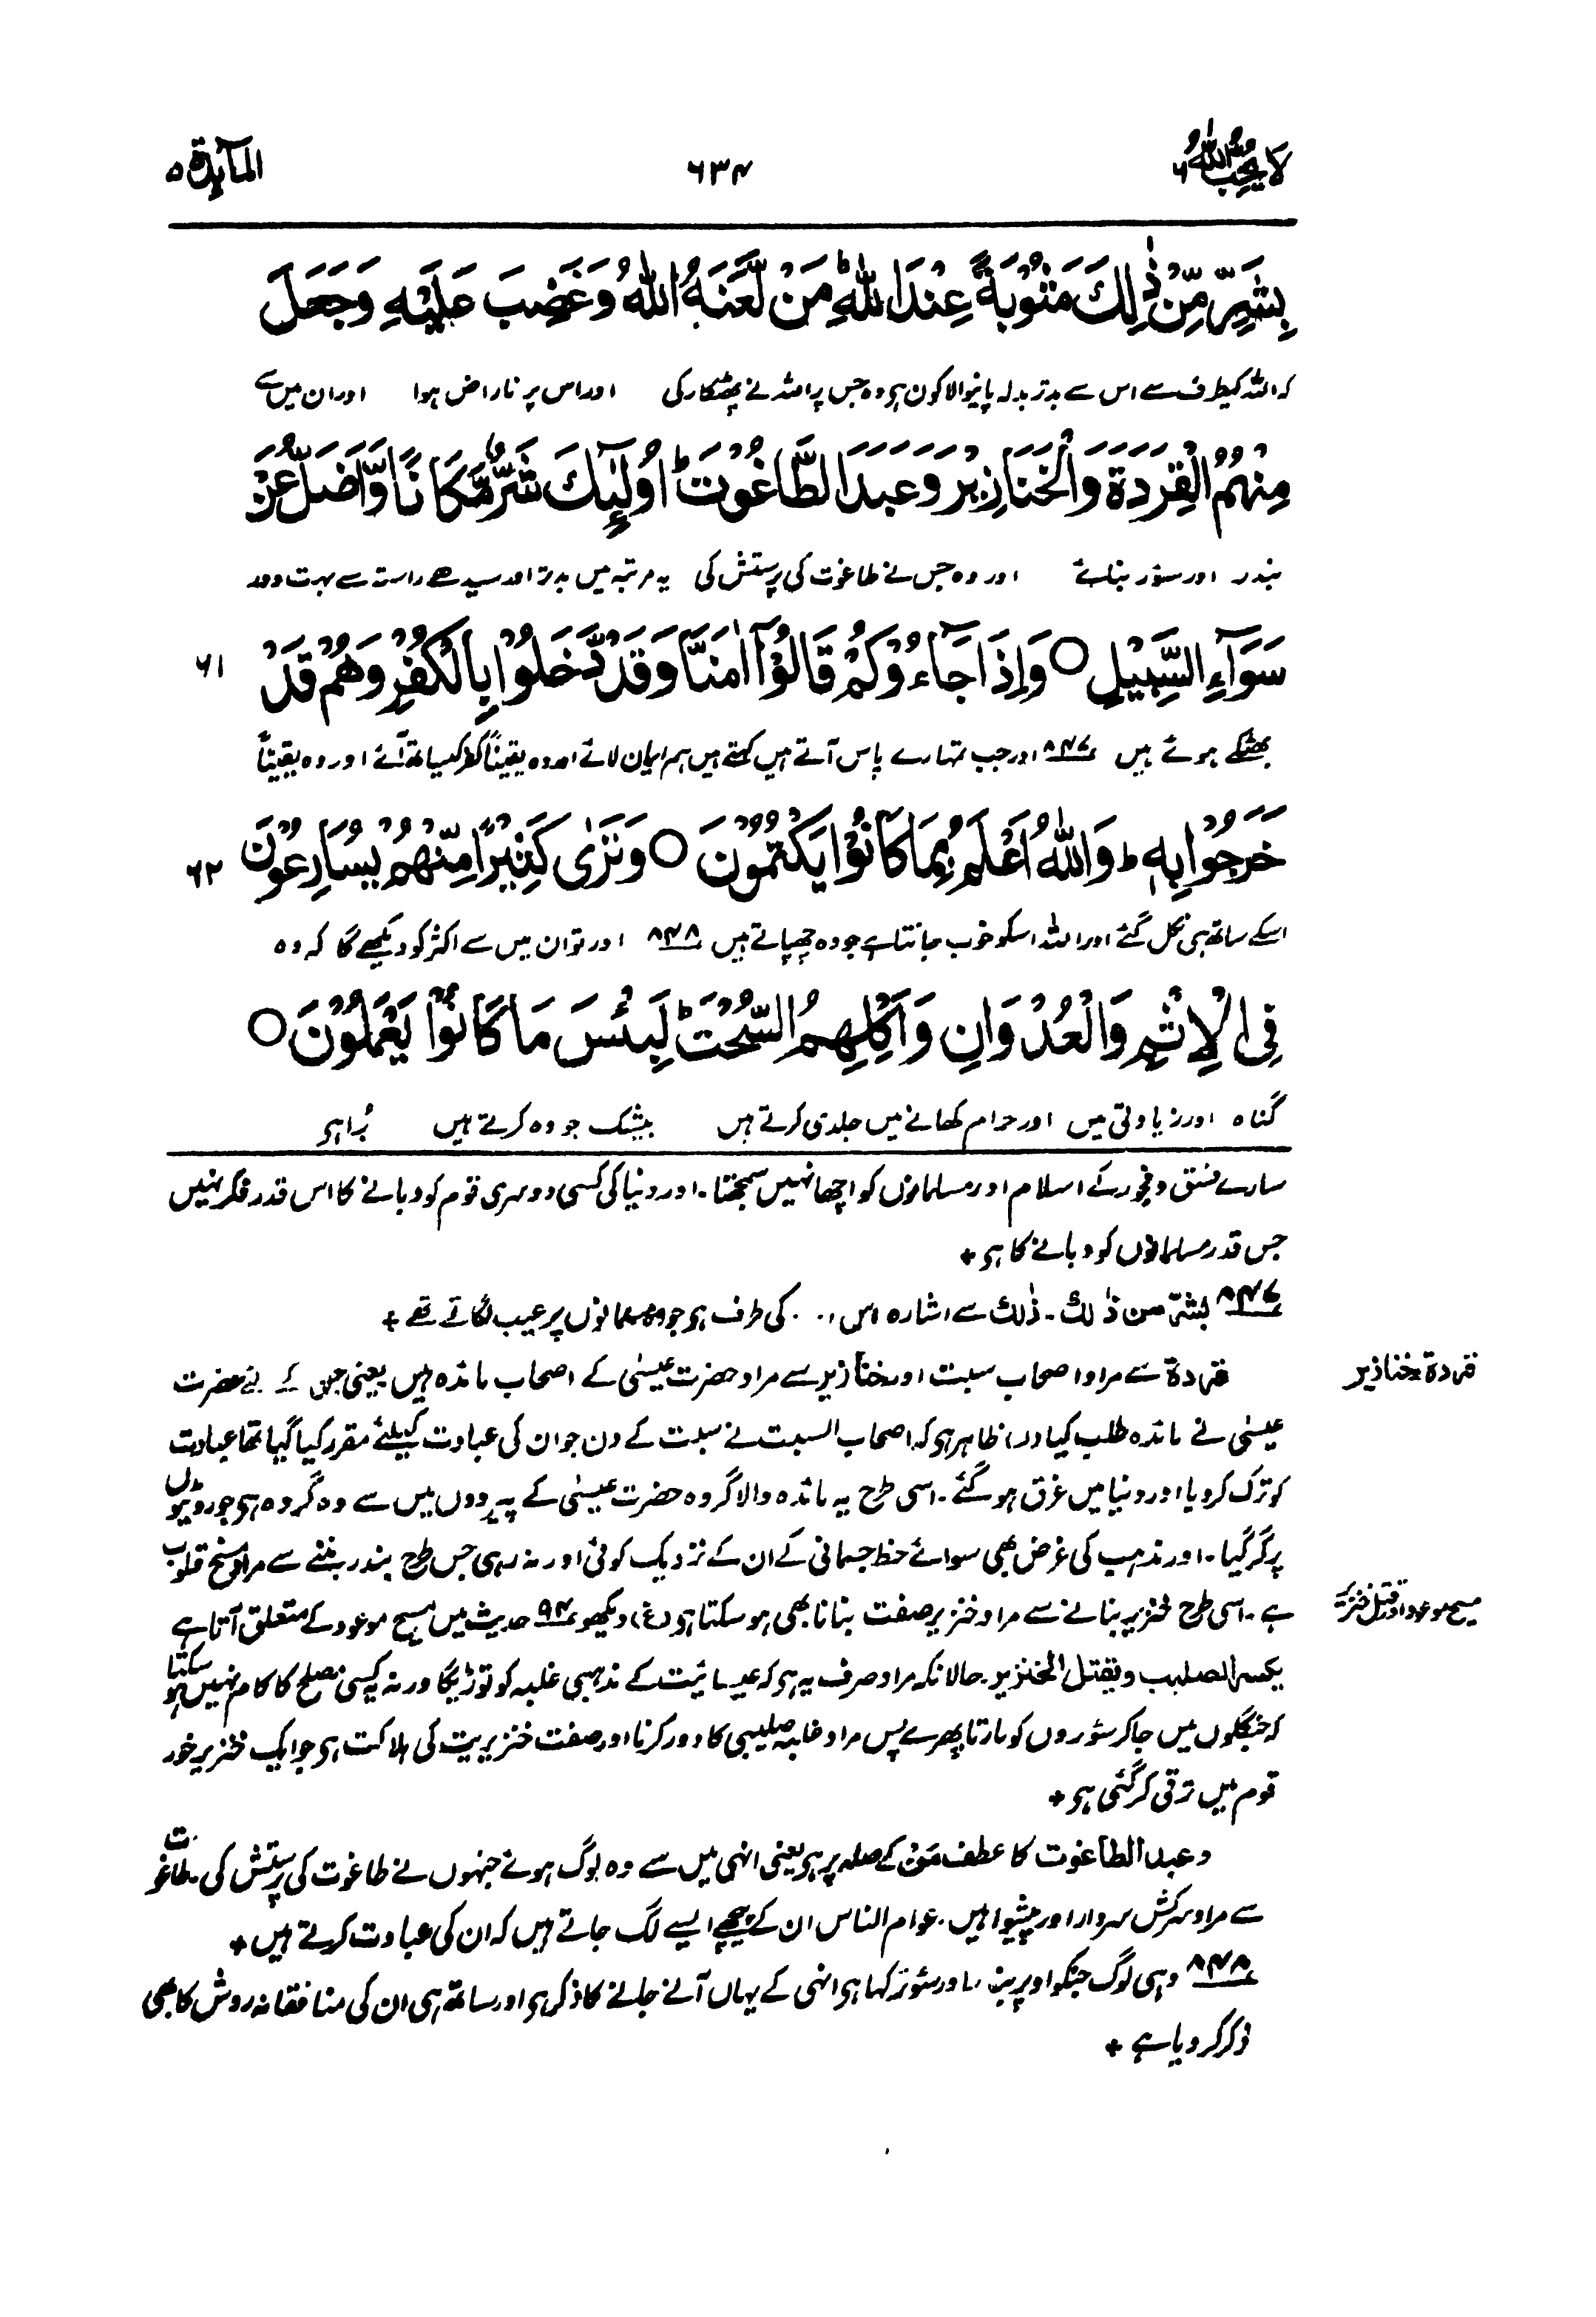 لا یحب اللہ ۶
۶۳۴
المآئدۃ ۵
بِشَرٍّ مِّنْ ذٰلِكَ مَثُوْبَةً عِنْدَ اللّٰهِ ؕ مَنْ لَّعَنَهُ اللّٰهُ وَغَضِبَ عَلَيْهِ وَجَعَلَ
کہ اللہ کیطرف سے اس سے بدتر بدلہ پانیوالا کون ہو وہ جس پر اللہ نے پھٹکار کی اور اس پر ناراض ہوا اور ان میں سے
مِنْهُمُ الْقِرَدَةَ وَالْخَنَازِيْرَ وَعَبَدَ الطَّاغُوْتَ ؕ اُولٰٓئِكَ شَرٌّ مَّكَانًا وَّاَضَلُّ عَنْ
بندر اور سؤر بنائے اور وہ جس نے طاغوت کی پرستش کی یہ مرتبہ میں بدتر اور سیدھے راستہ سے بہت دور
سَوَآءِ السَّبِيْلِ ○ وَاِذَا جَآءُوْكُمْ قَالُوْٓا اٰمَنَّا وَقَدْ دَّخَلُوْا بِالْكُفْرِ وَهُمْ قَدْ
۶۱
بھٹکے ہوئے ہیں ۸۴۷ اور جب تمہارے پاس آتے ہیں کہتے ہیں ہم ایمان لائے اور وہ یقیناً کفر کیساتھ آئے اور وہ یقیناً
خَرَجُوْا بِهٖ ؕ وَاللّٰهُ اَعْلَمُ بِمَا كَانُوْا يَكْتُمُوْنَ ○ وَتَرٰى كَثِيْرًا مِّنْهُمْ يُسَارِعُوْنَ
۶۲
اسکے ساتھ ہی نکل گئے اور اللہ اسکو خوب جانتا ہے جو وہ چھپاتے ہیں ۸۴۸ اور تو ان میں سے اکثر کو دیکھے گا کہ وہ
فِى الْاِثْمِ وَالْعُدْوَانِ وَاَكْلِهِمُ السُّحْتَ ؕ لَبِئْسَ مَا كَانُوْا يَعْمَلُوْنَ ○
گناہ اور زیادتی میں اور حرام کھانے میں جلدی کرتے ہیں بیشک جو وہ کرتے ہیں بُرا ہو
سارے فسق و فجور کے اسلام اور مسلمانوں کو اچھا نہیں سمجھتا۔ اور دنیا کی کسی دوسری قوم کو دبانے کا اس قدر فکر نہیں
جس قدر مسلمانوں کو دبانے کا ہو +
۸۴۷ بشرّ من ذٰلك۔ ذٰلك سے اشارہ اس کی طرف ہو جو وہ مسلمانوں پر عیب لگاتے تھے +
قردة سے مراد اصحاب سبت اور خنازیر سے مراد حضرت عیسٰی کے اصحاب مائدہ ہیں یعنی جن کے لئے حضرت
قردة و خنازیر
عیسٰی نے مائدہ طلب کیا اور ظاہر ہو کہ اصحاب السبت نے سبت کے دن جو ان کی عبادت کیلئے مقرر کیا گیا تھا عبادت
کو ترک کر دیا اور دنیا میں غرق ہو گئے۔ اسی طرح یہ مائدہ والا گروہ حضرت عیسٰی کے پیرووں میں سے وہ گروہ ہو جو روٹیوں
پر گر گیا۔ اور مذہب کی غرض بھی سوائے حظ جسمانی کے ان کے نزدیک کوئی اور نہ رہی جس طرح بندر بننے سے مراد مسخ قلوب
ہے۔ اسی طرح خنزیر بنانے سے مراد خنزیر صفت بنانا بھی ہو سکتا ہو (غ) دیکھو ۹۴ حدیث میں مسیح موعود کے متعلق آتا ہے
مسیح موعود اور قتل خنزیر
یکسر الصلیب ویقتل الخنزیر۔ حالانکہ مراد صرف یہ ہو کہ عیسائیت کے مذہبی غلبہ کو توڑیگا ورنہ یہ کسی مصلح کا کام نہیں ہو سکتا
کہ جنگلوں میں جا کر سؤروں کو مارتا پھرے پس مراد غلبہ صلیبی کا دور کرنا اور صفت خنزیریت کی ہلاکت ہو جو ایک خنزیر خور
قوم میں ترقی کر گئی ہو +
وعبد الطاغوت کا عطف مَنْ کے صلہ پر ہو یعنی انہی میں سے وہ لوگ ہوئے جنہوں نے طاغوت کی پرستش کی۔ طاغوت
سے مراد سرکش سردار اور پیشوا ہیں۔ عوام الناس ان کے پیچھے ایسے لگ جاتے ہیں کہ ان کی عبادت کرتے ہیں +
۸۴۸ وہی لوگ جنکو اوپر بندر اور سؤر کہا ہو انہی کے یہاں آنے جانے کا ذکر ہو اور ساتھ ہی ان کی منافقانہ روش کا بھی
ذکر کر دیا ہے +